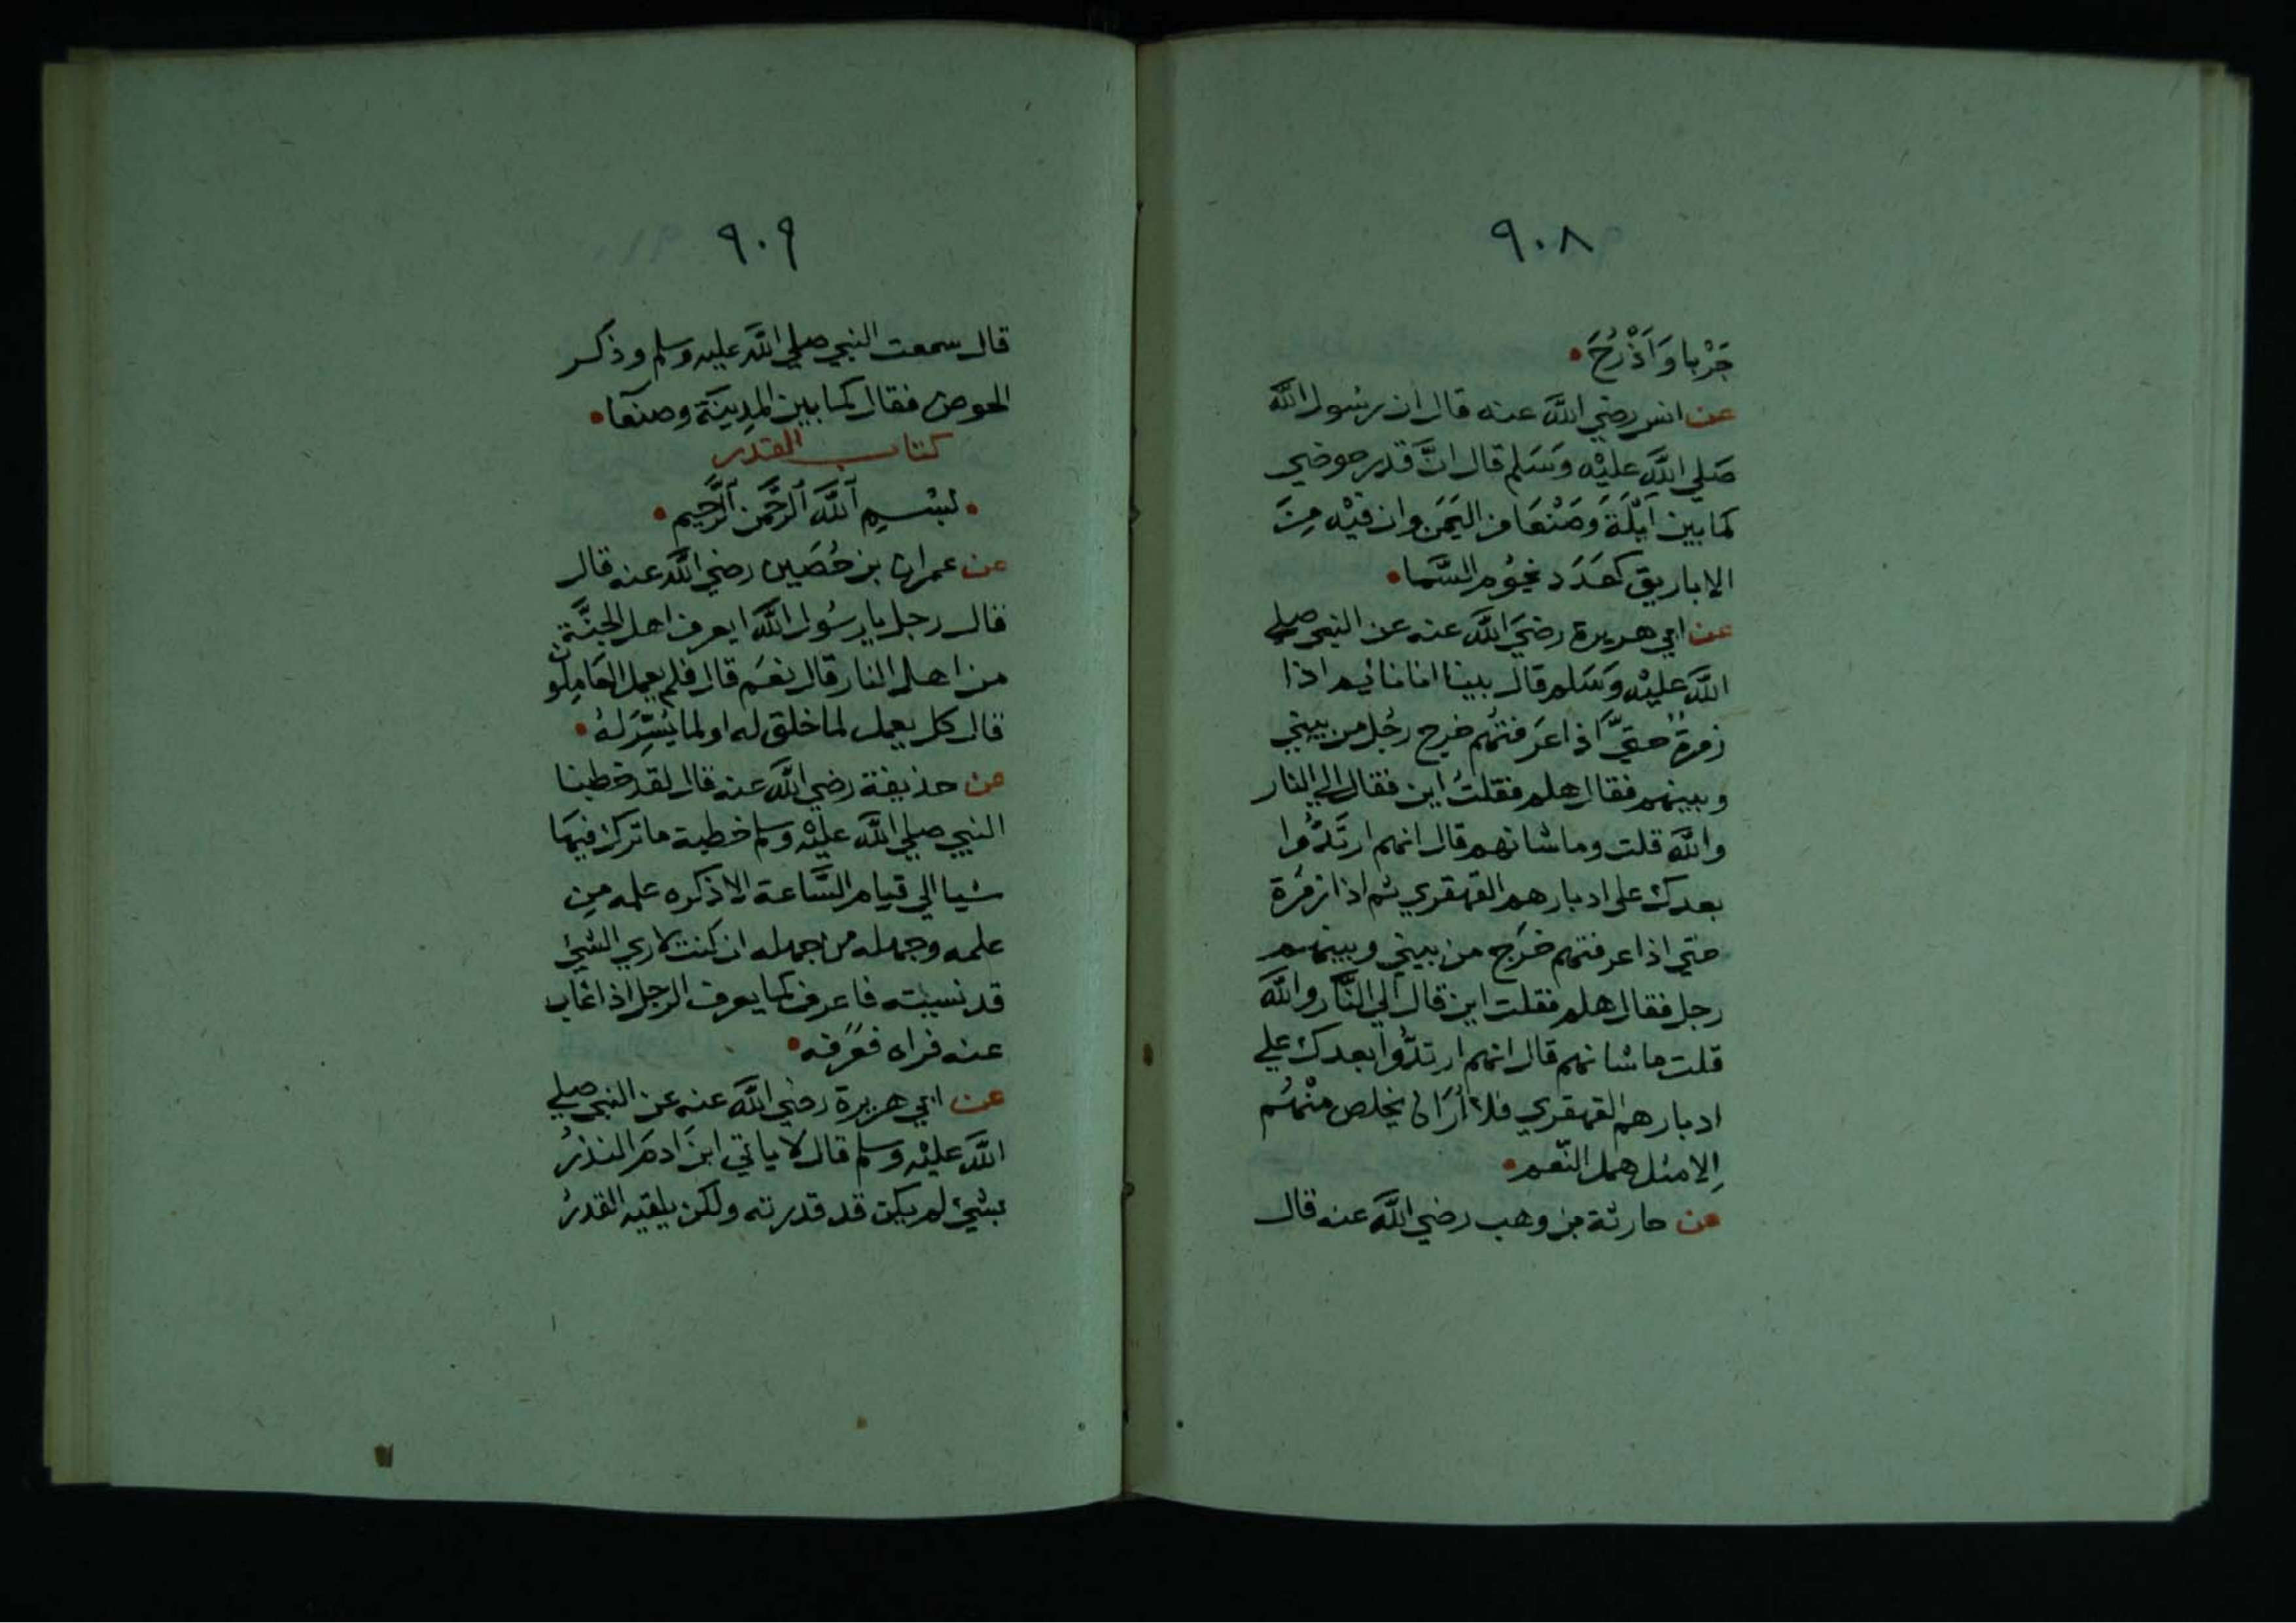 ٩٠٨
جَرْبا وَاَذْرُحَ
عن انس رضي اللَّه عنه قال ان رسُول اللَّه
صَلي اللَّه عليْه وَسَلم قال انَّ قدر حوضي
كما بين اَيْلَةَ وصَنْعَا من اليَمَن وان فيْه مِنَ
الاباريق كعَدَد نجوُم السَّما
عن ابي هريرة رضيَ اللَّه عنه عن النبي صلي
اللَّه عليْه وَسَلم قال بينا انا نائم اذا
زمرةٌ حتيَّ اذا عَرَفتهُم خرج رجُل من بيني
وبينهم فقال هلم فقلتُ اين فقال الي النار
واللَّه قلت وما شانهم قال انهم ارتَدُّوا
بعدك على ادبارهم القهقري ثم اذا زمُرة
حتي اذا عرفتهم خرَج من بيني وبينهم
رجل فقال هلم فقلت اين قال الي النَّار واللَّه
قلت ما شانهم قال انهم ارتدُّوا بعدك علي
ادبارهم القهقري فلا اُرَاه يخلص منْهُم
اِلا مثل همل النَّعم
عن حارثة بن وهب رضي اللَّه عنه قال
٩٠٩
قال سمعت النبي صلي اللَّه عليه وسلم وذكر
الحوض فقال كما بين المدِينَة وصنعَا
كتاب القدر
بسْمِ اَللَّه اَلرَّحمن اَلرَّحيم
عن عمران بن حُصَين رضي اللَّه عنه قال
قال رجل يا رسُول اللَّه ايعرف اهل الجنَّة
من اهل النار قال نعَم قال فلم يعمل العَامِلون
قال كل يعمل لما خلق له او لما يُسِّرَ لهُ
عن حذيفة رضي اللَّه عنه قال لقد خطبنا
النبي صلي اللَّه عليْه وسلم خطبة ما ترك فيهَا
شيا الي قيام السَّاعة الا ذكره علمه مِن
علمه وجهله من جهله ان كنت لاري الشيئ
قد نسيته فاعرف كما يعرف الرجل اذا غاب
عنه فراه فعَرفه
عن ابي هريرة رضي اللَّه عنه عن النبي صلي
اللَّه عليْه وسلم قال لا ياتي ابنَ ادمَ النذرُ
بشيئ لم يكن قد قدرته ولكن يلقيه القدرُ